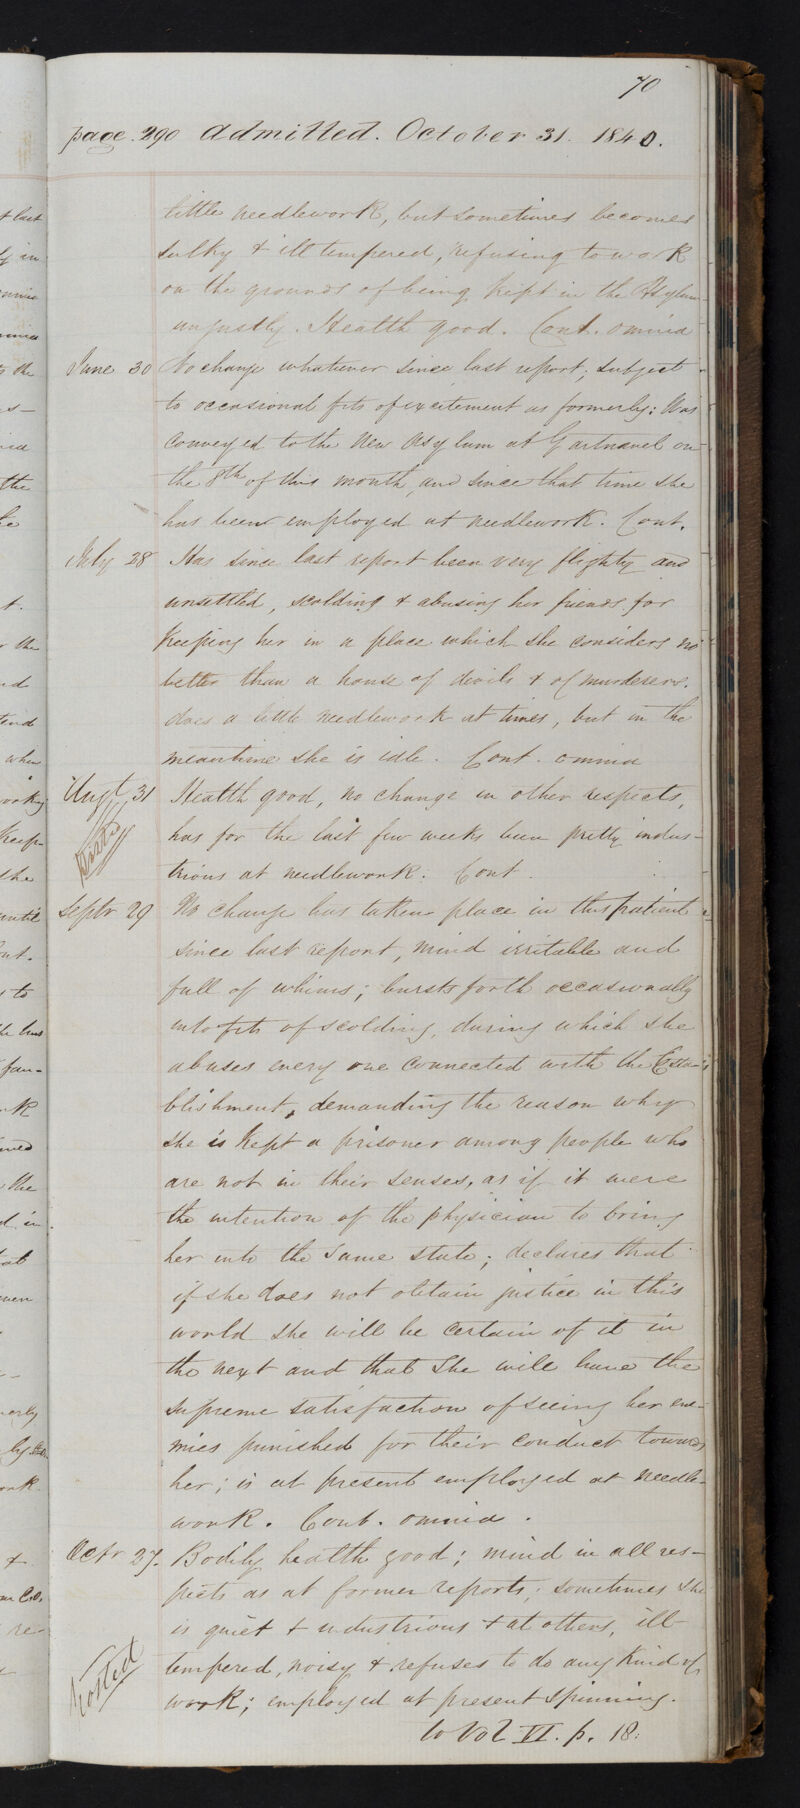 70
page. 290 Admitted. October 31. 1840.
little needlework, but sometimes becomes
sulky & ill tempered, refusing to work
on the grounds of being kept in the Asylum
unjustly. Health good. Cont. omnia
June 30 No change whatever since last report; subject
to occasional fits of excitement as formerly: Was
conveyed to the New Asylum at Gartnavel on
the 8th of this month, and since that time she
has been employed at needlework. Cont.
July 28 Has since last report been very flighty and
unsettled, scolding & abusing her friends for
keeping her in a place which she considers no
better than a house of devils & of murderers.
does a little needlework at times, but in the
meantime she is idle. Cont. omnia
Augt 31 Health good, no change in other respects,
has for the last few weeks been pretty indus-
trious at needlework. Cont.
Septr 29 No change has taken place in this patient
since last report, mind irritable and
full of whims; bursts forth occasionally
into fits of scolding, during which she
abuses every one connected with the Esta-
blishment, demanding the reason why
she is kept a prisoner among people who
are not in their senses, as if it were
the intention of the physician to bring
her into the same state; declares that
if she does not obtain justice in this
world she will be certain of it in
the next and that she will have the
supreme satisfaction of seeing her ene-
mies punished for their conduct towards
her; is at present employed at needle-
work. Cont. omnia.
Octr 27. Bodily health good; mind in all res-
pects as at former reports; sometimes she
is quiet & industrious & at others, ill
tempered, noisy & refuses to do any kind of
Posted
work; employed at present spinning.
to Vol VI. p. 18.